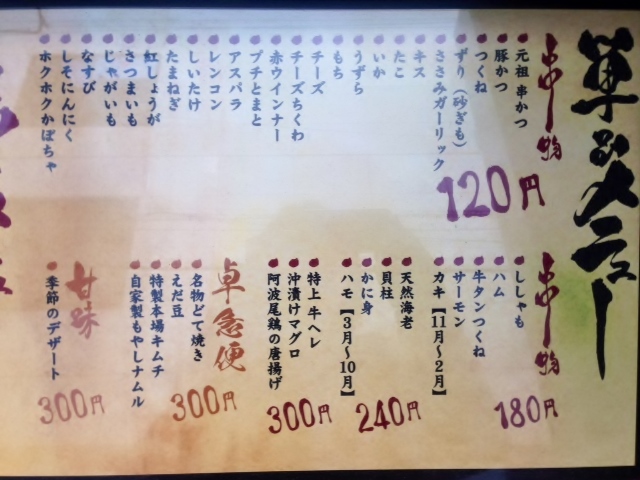 単品メニュー
串物
元祖 串かつ
豚かつ
つくね
ずり（砂ぎも）
ささみガーリック
キス
たこ
いか
うずら
もち
チーズ
チーズちくわ
赤ウインナー
プチとまと
アスパラ
レンコン
しいたけ
たまねぎ
紅しょうが
さつまいも
じゃがいも
なすび
しそにんにく
ホクホクかぼちゃ
120円
串物
ししゃも
ハム
牛タンつくね
サーモン
カキ【11月〜2月】
180円
天然海老
貝柱
かに身
ハモ【3月〜10月】
240円
特上 牛ヘレ
沖漬けマグロ
阿波尾鶏の唐揚げ
300円
卓急便
名物どて焼き
えだ豆
特製本場キムチ
自家製もやしナムル
300円
甘味
季節のデザート
300円